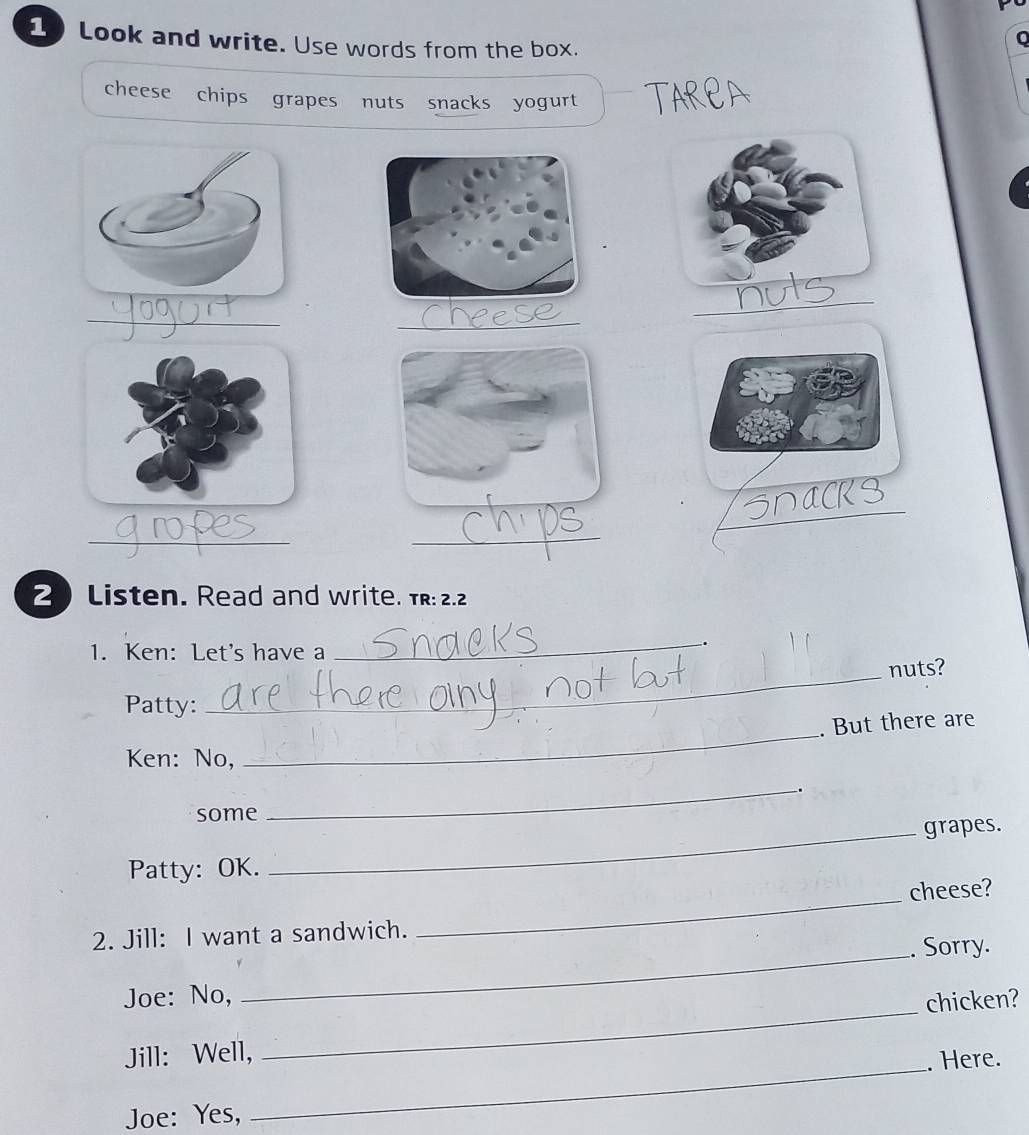 1 Look and write. Use words from the box.
cheese chips grapes nuts snacks yogurt TAReA
yogurt cheese nuts
gropes chips snacks
2 Listen. Read and write. TR: 2.2
1. Ken: Let's have a snacks.
Patty: are there any not but nuts?
Ken: No, . But there are
some .
Patty: OK. grapes.
2. Jill: I want a sandwich. cheese?
Joe: No, . Sorry.
Jill: Well, chicken?
Joe: Yes, . Here.